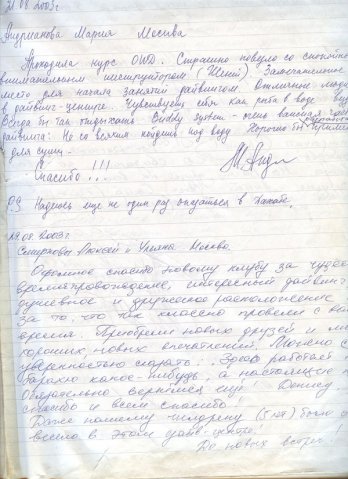 21.08.2003г.
Андрианова Мария Москва
Проходила курс OWD. Страшно повезло со спокойным
внимательным инструктором (Женей). Замечательное
место для начала занятий дайвингом. Отличные люди
в дайвинг-центре. Чувствуешь себя как рыба в воде.
Всегда бы так отдыхать. Buddy system - очень важная
дайвинга: Не со всяким пойдешь под воду. Хорошо бы
для суши.
Спасибо !!!
P.S. Надеюсь еще не один раз оказаться в
29.08.2003г.
Смирновы Алексей и Ульяна. Москва.
Огромное спасибо вашему клубу за
времяпровождение, интересный дайвинг
душевное и дружеское расположение
за то, что так классно провели с вами
время. Приобрели новых друзей и
хороших, новых впечатлений. Можно с
уверенностью сказать: Здесь работает
барахло какое-нибудь, а настоящие
Обязательно вернемся еще! Денису
спасибо и всем спасибо!
Даже нашему человечку (5 лет) было
весело в этом дайв-центре!
До новых встреч!